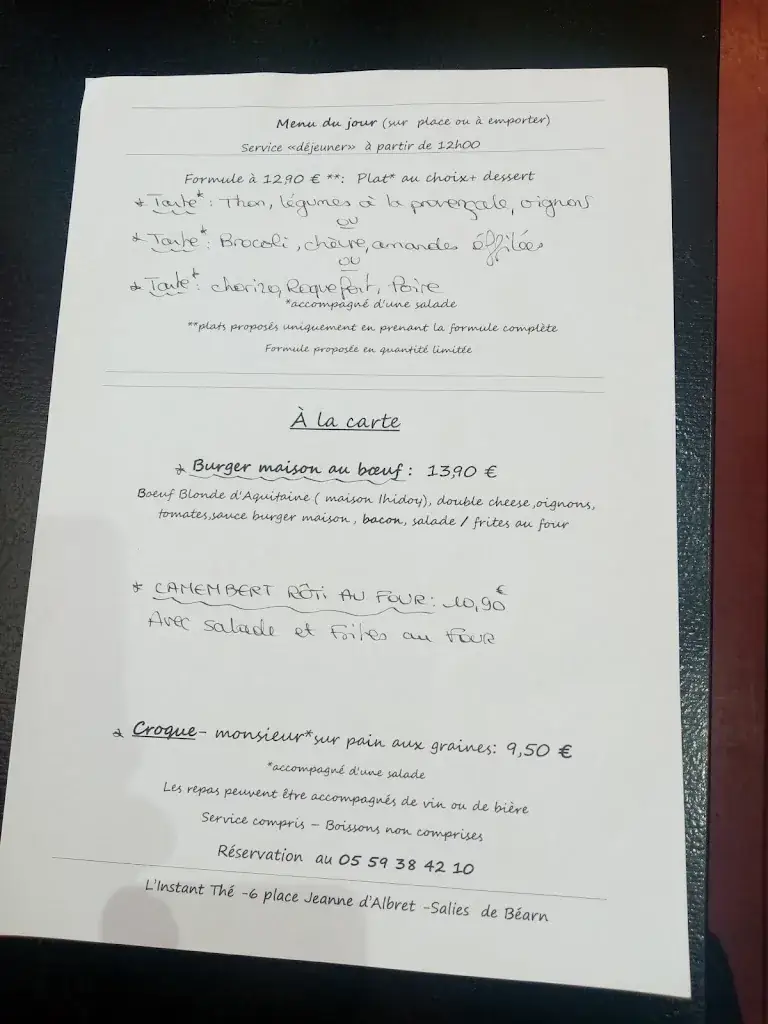 Menu du jour (sur place ou à emporter)
Service «déjeuner» à partir de 12h00
Formule à 12,90 € **: Plat* au choix+ dessert
* Tarte* : Thon, légumes à la provençale, oignons
ou
* Tarte* : Brocoli, chèvre, amandes éffilées
ou
* Tarte* : chorizo, Roquefort, Poire
*accompagné d'une salade
**plats proposés uniquement en prenant la formule complète
Formule proposée en quantité limitée
À la carte
* Burger maison au bœuf : 13,90 €
Boeuf Blonde d'Aquitaine ( maison Ihidoy), double cheese ,oignons,
tomates,sauce burger maison , bacon, salade / frites au four
* CAMEMBERT RÔTI AU FOUR : 10,90 €
Avec salade et frites au FOUR
* Croque- monsieur*sur pain aux graines: 9,50 €
*accompagné d'une salade
Les repas peuvent être accompagnés de vin ou de bière
Service compris – Boissons non comprises
Réservation au 05 59 38 42 10
L'Instant Thé -6 place Jeanne d'Albret -Salies de Béarn